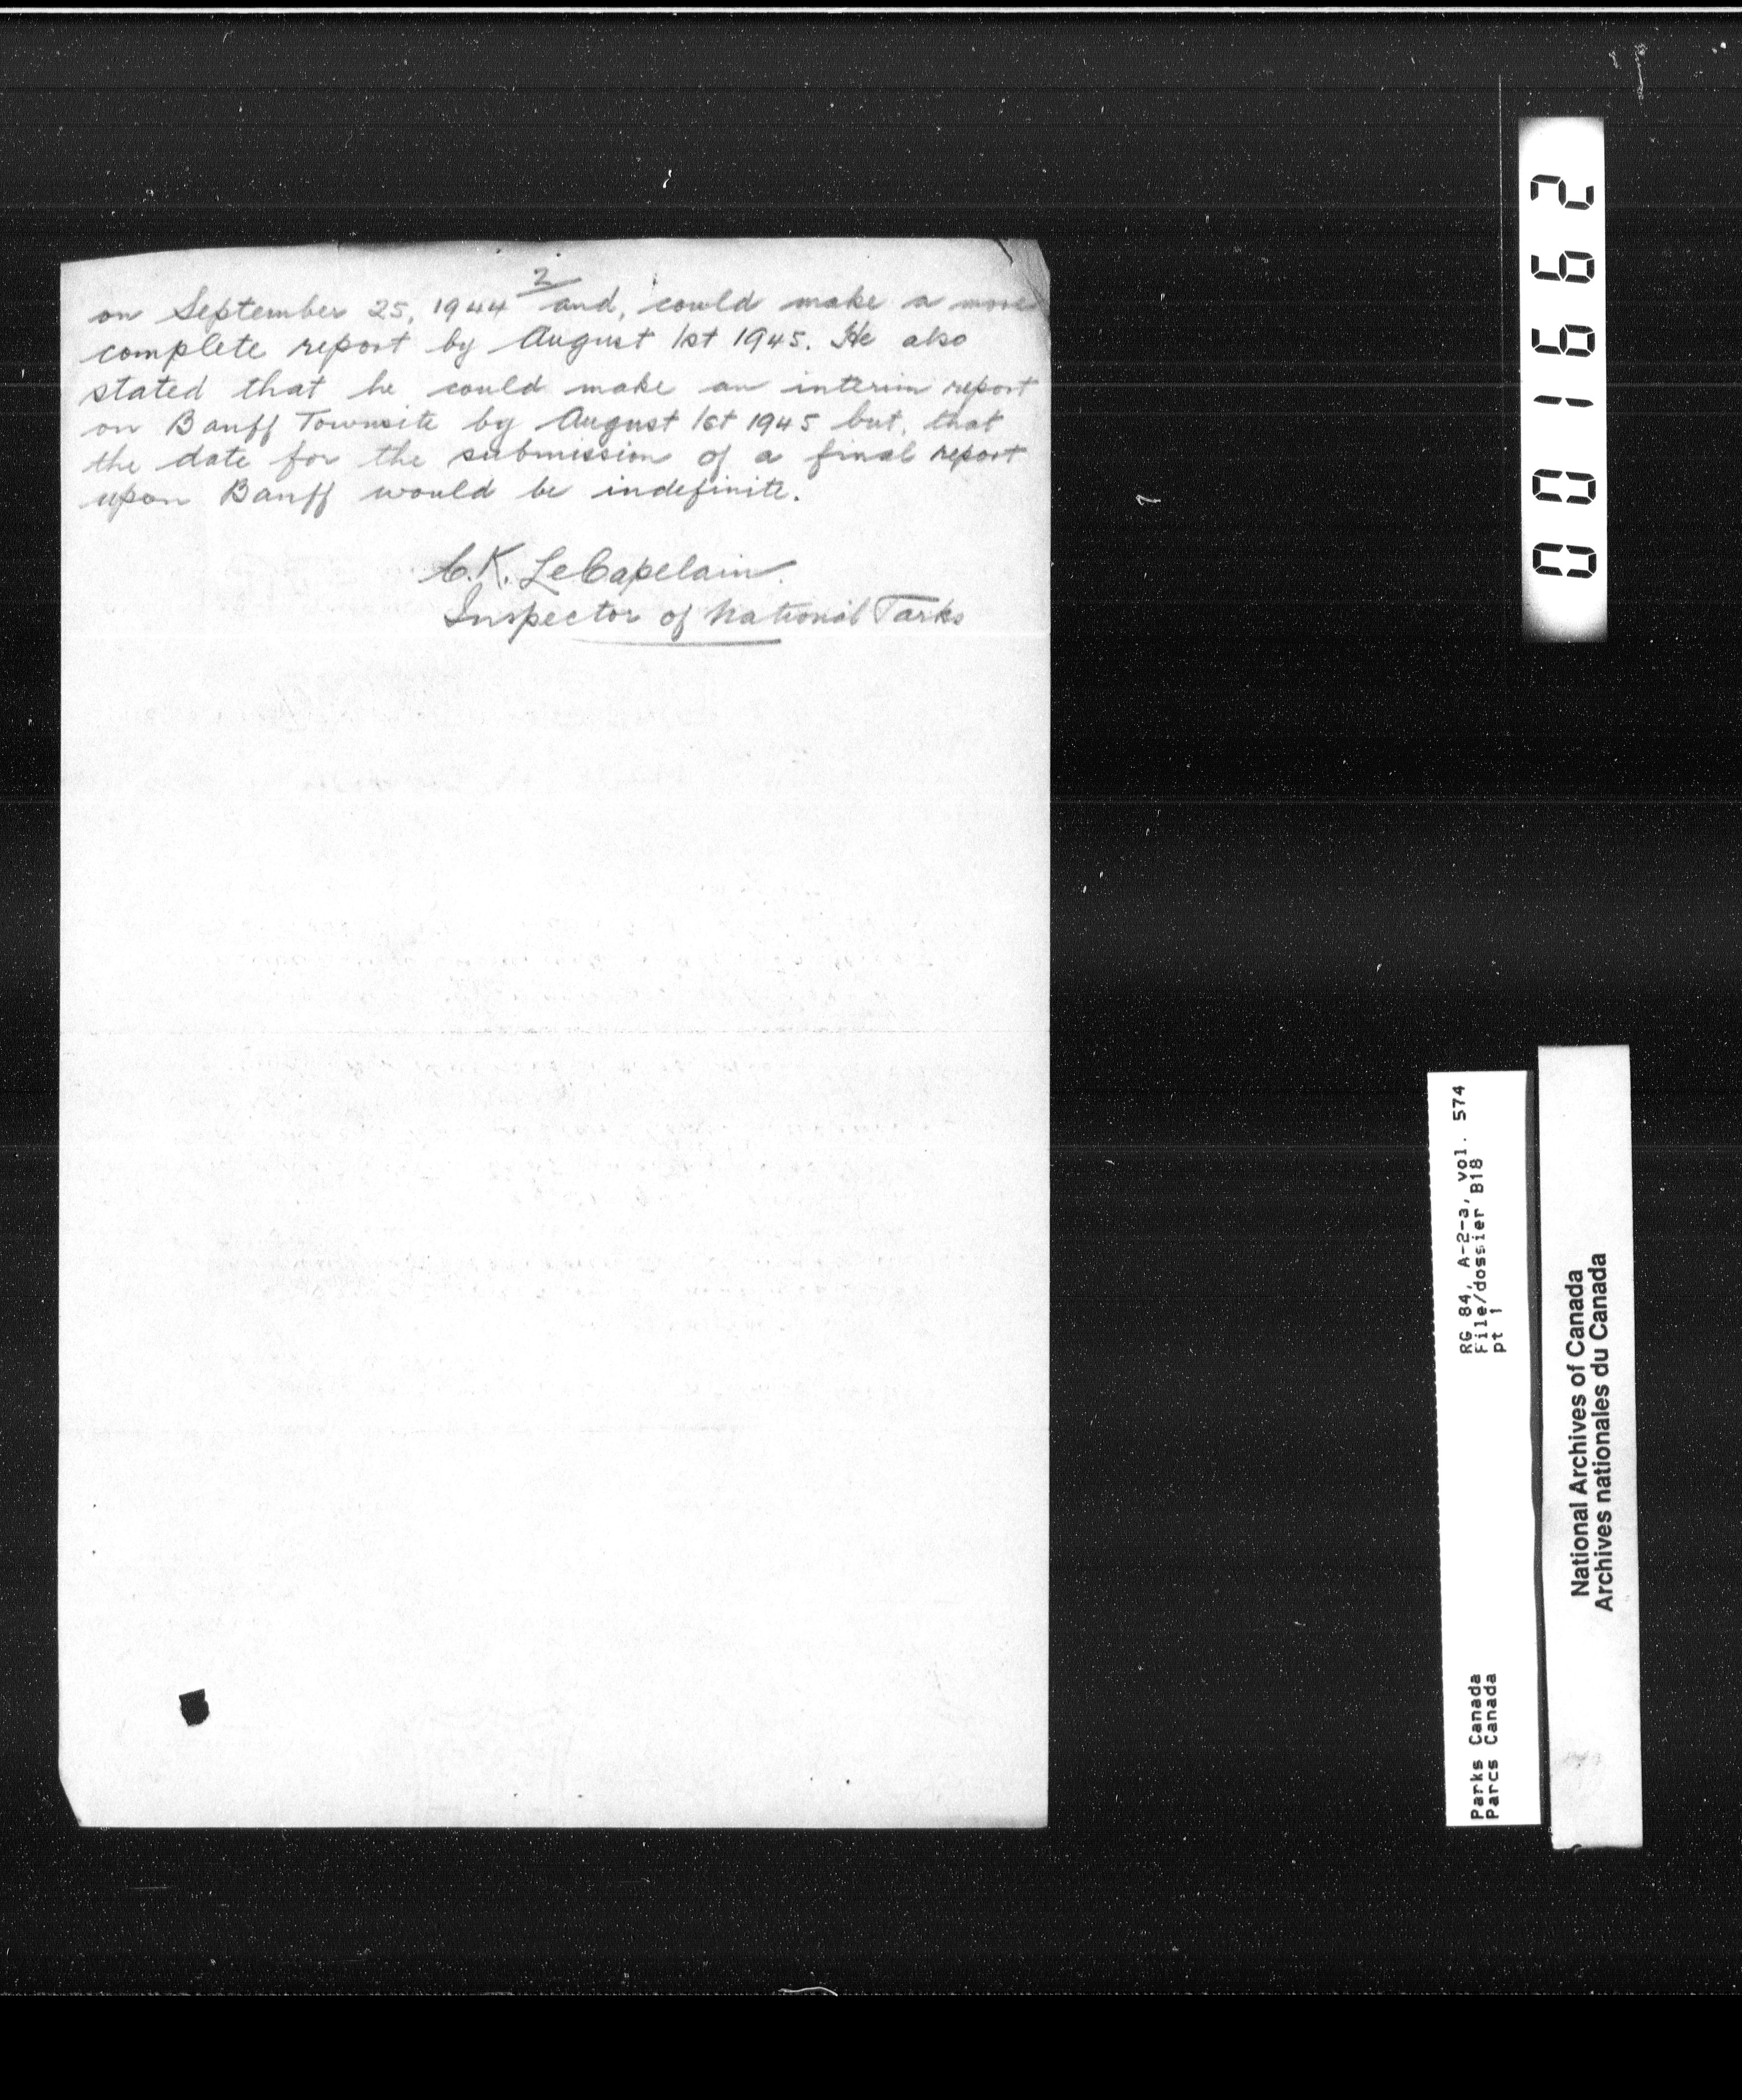 2
on September 25, 1944 and, could make a more
complete report by August 1st 1945. He also
stated that he could make an interim report
on Banff Townsite by August 1st 1945 but, that
the date for the submission of a final report
upon Banff would be indefinite.
C.K. LeCapelain.
Inspector of National Parks
001662
RG 84, A-2-a, vol. 574
File/dossier B18
pt 1
Parks Canada
Parcs Canada
National Archives of Canada
Archives nationales du Canada